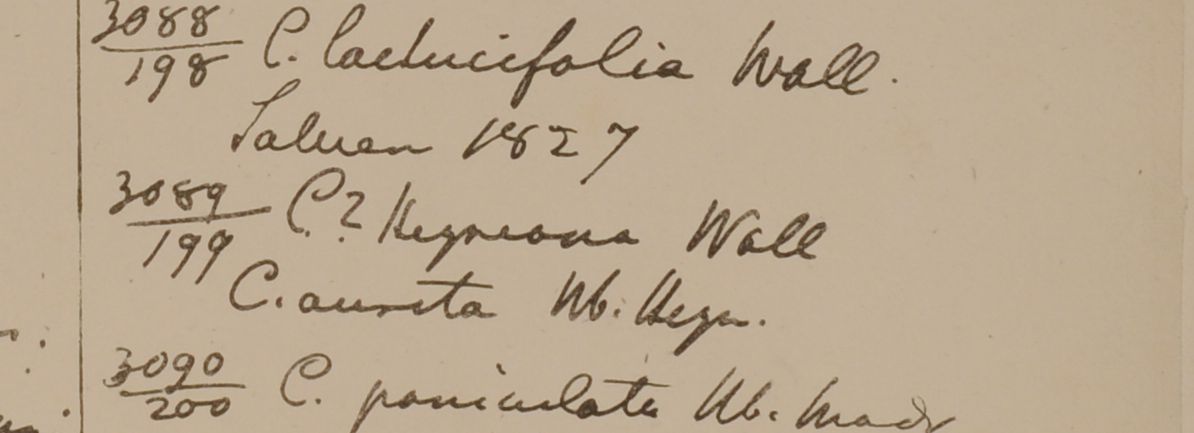 3088
198 C. lactucifolia Wall.
Saluen 1827
3089
199 C.? Heyneana Wall
C. aurita Hb. Heyn.
3090
200 C. paniculata Hb. Madr